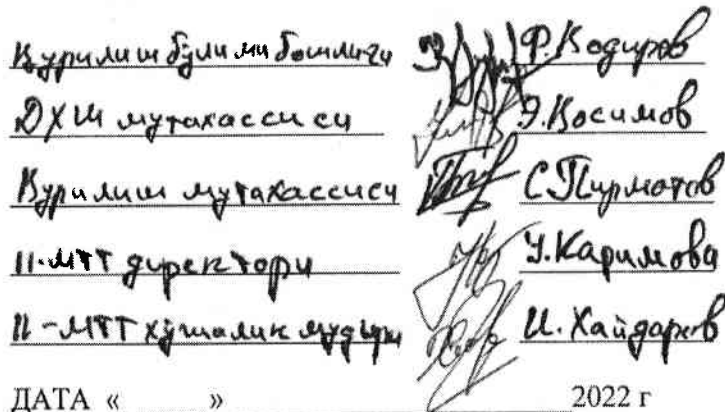 Қурилиш бўлими бошлиғи Ф. Кодиров
ДХШ мутахассиси Э. Косимов
Қурилиш мутахассиси С. Пирматов
11-МТТ директори У. Каримова
11-МТТ хўжалик мудири И. Хайдаров
ДАТА « » 2022 г